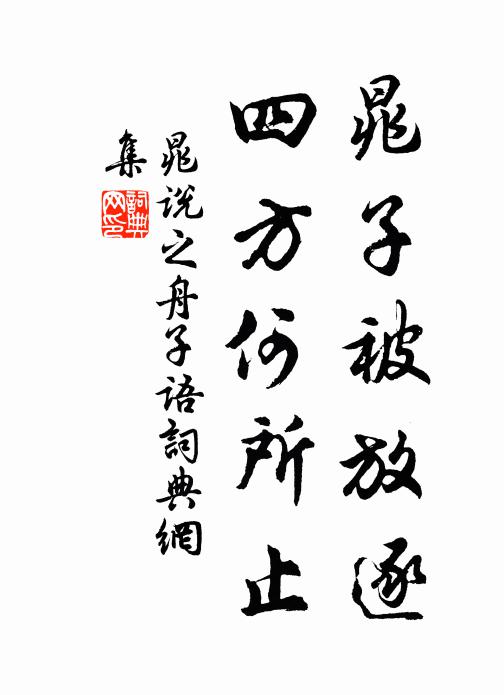 晁子被放逐
四方何所止
晁说之舟子語詞典網
集
詞典
网印